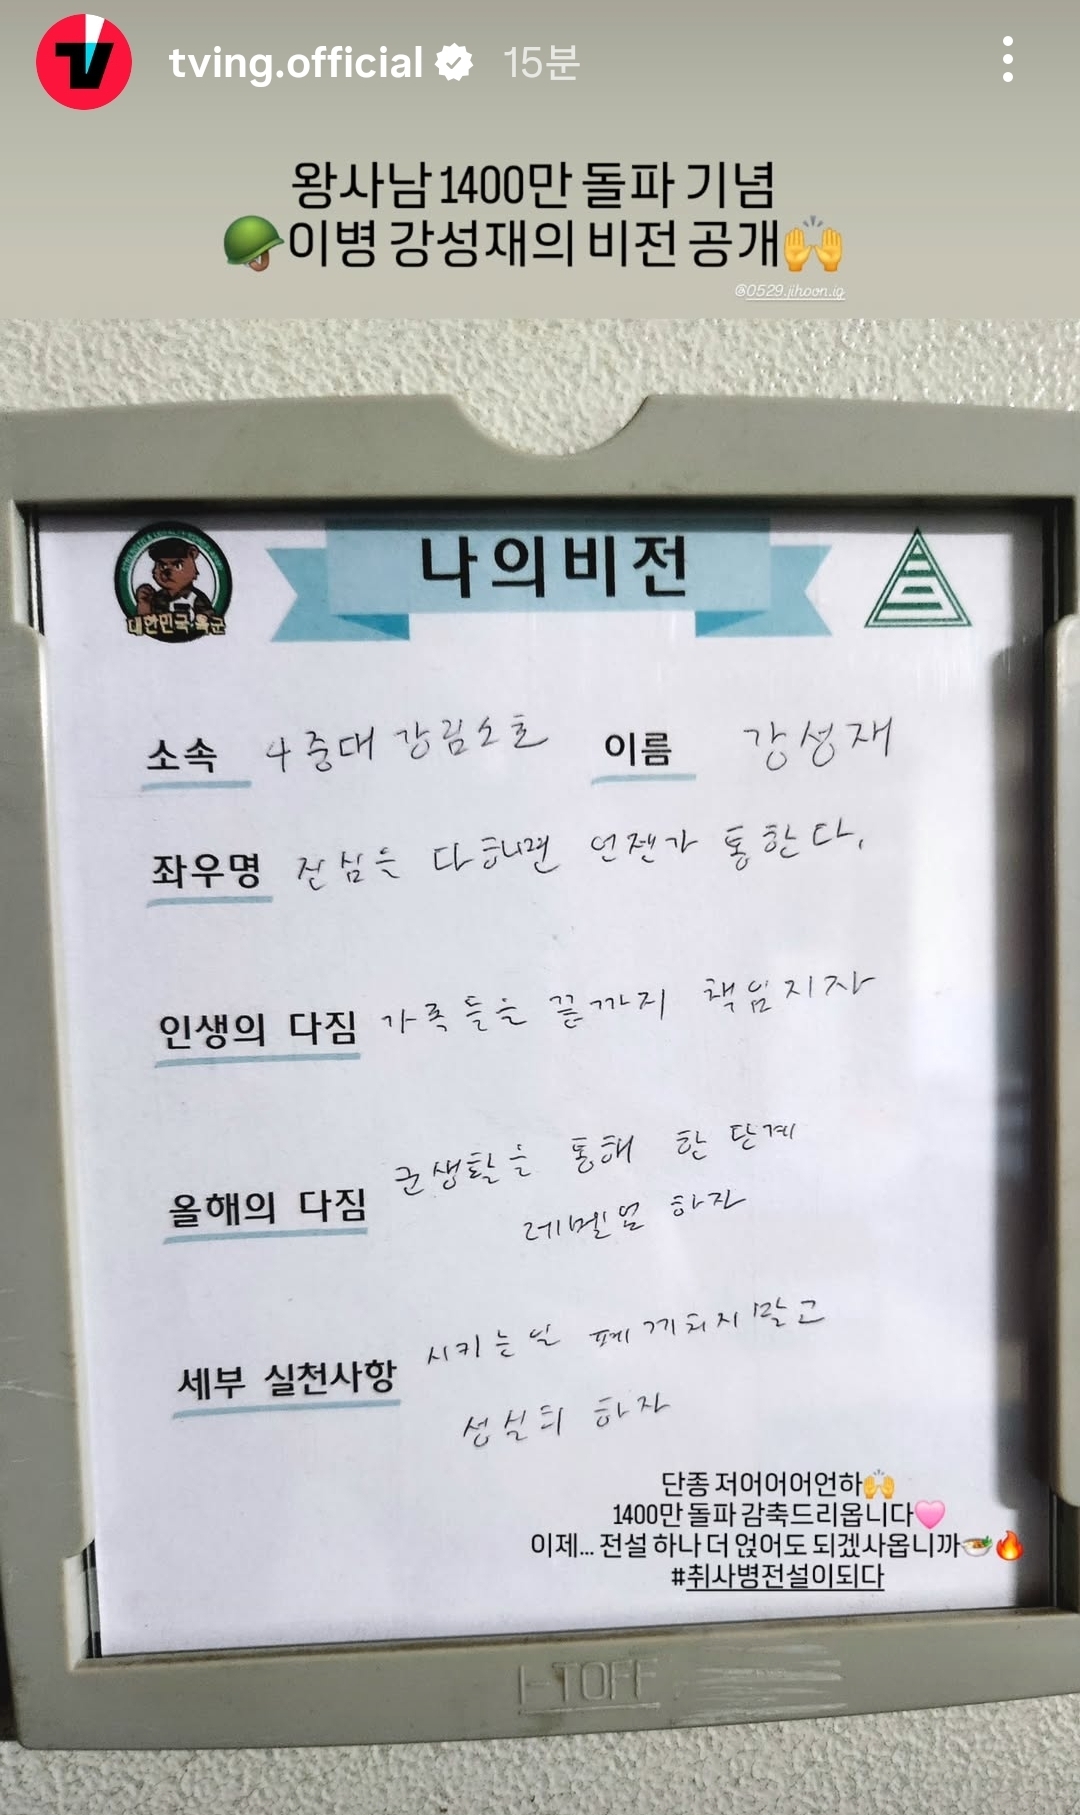 tving.official 15분
왕사남 1400만 돌파 기념
이병 강성재의 비전 공개
@0529.jihoon.ig
대한민국 육군
나의비전
소속 4중대 강림소초 이름 강성재
좌우명 진심을 다하면 언젠가 통한다.
인생의 다짐 가족들을 끝까지 책임지자
올해의 다짐 군생활을 통해 한 단계
레벨업 하자
세부 실천사항 시키는일 폐 끼치지말고
성실히 하자
단종 저어어어언하
1400만 돌파 감축드리옵니다
이제... 전설 하나 더 얹어도 되겠사옵니까
#취사병전설이되다
I-TOFF